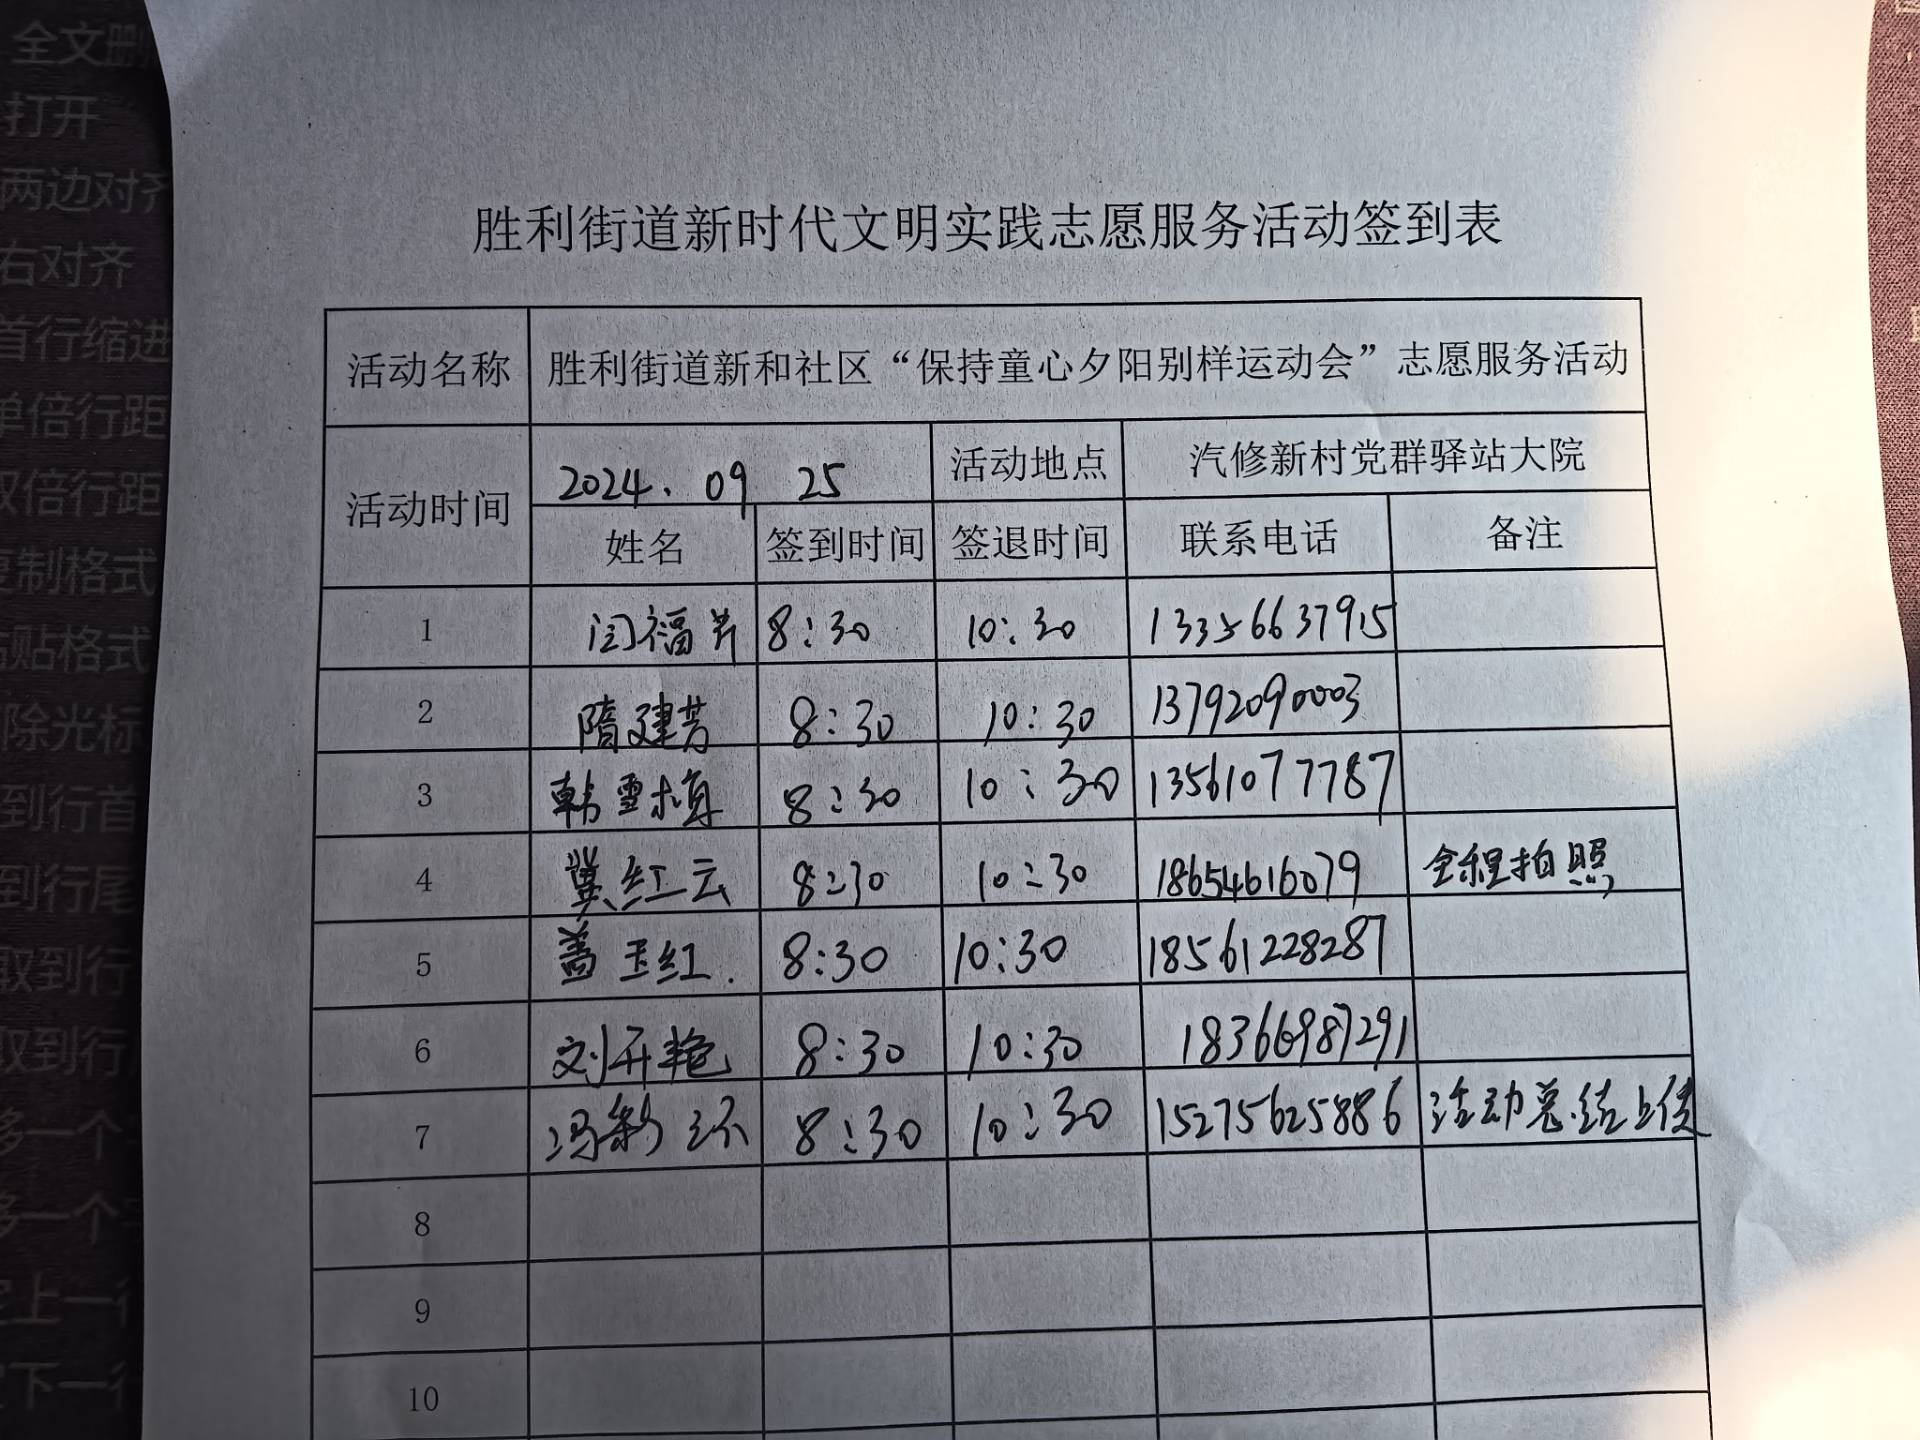 全文删
打开
两边对齐
右对齐
首行缩进
单倍行距
双倍行距
复制格式
粘贴格式
删除光标
到行首
到行尾
取到行
取到行
移一个字
移一个字
定上一行
定下一行
胜利街道新时代文明实践志愿服务活动签到表
活动名称 胜利街道新和社区“保持童心夕阳别样运动会”志愿服务活动
活动时间 2024.09 25 活动地点 汽修新村党群驿站大院
姓名 签到时间 签退时间 联系电话 备注
1 闫福芹 8:30 10:30 13356637915
2 隋建芳 8:30 10:30 13792090003
3 韩雪梅 8:30 10:30 13561077787
4 冀红云 8:30 10:30 18654616079 全程拍照
5 盖玉红. 8:30 10:30 18561228287
6 刘开艳 8:30 10:30 18366987291
7 冯彩环 8:30 10:30 15275625886 活动总结上传
8
9
10